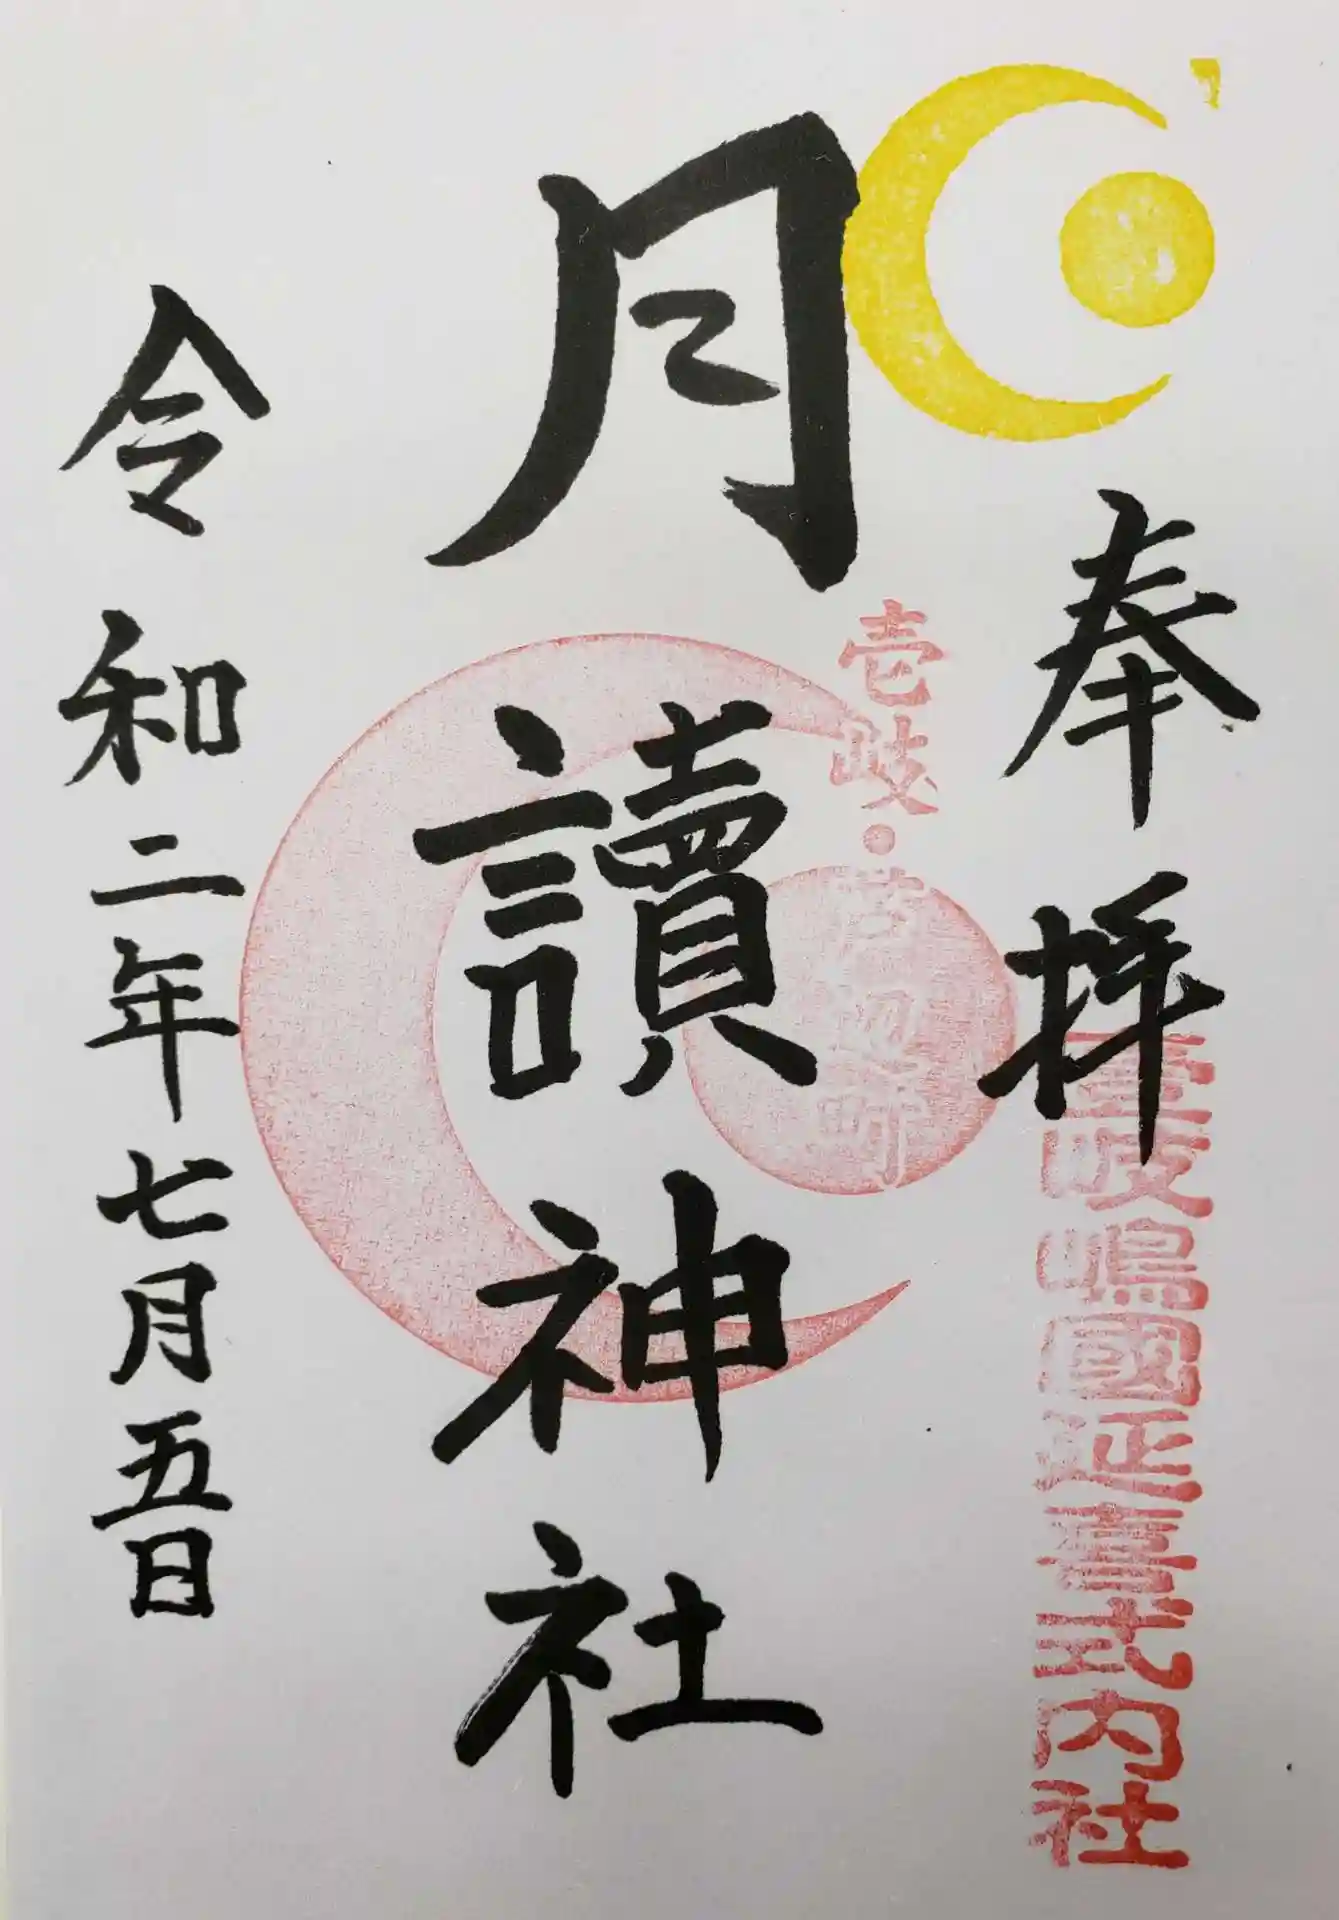 奉拝
壱岐嶋國延喜式内社
壱岐・芦辺町
月讀神社
令和二年七月五日